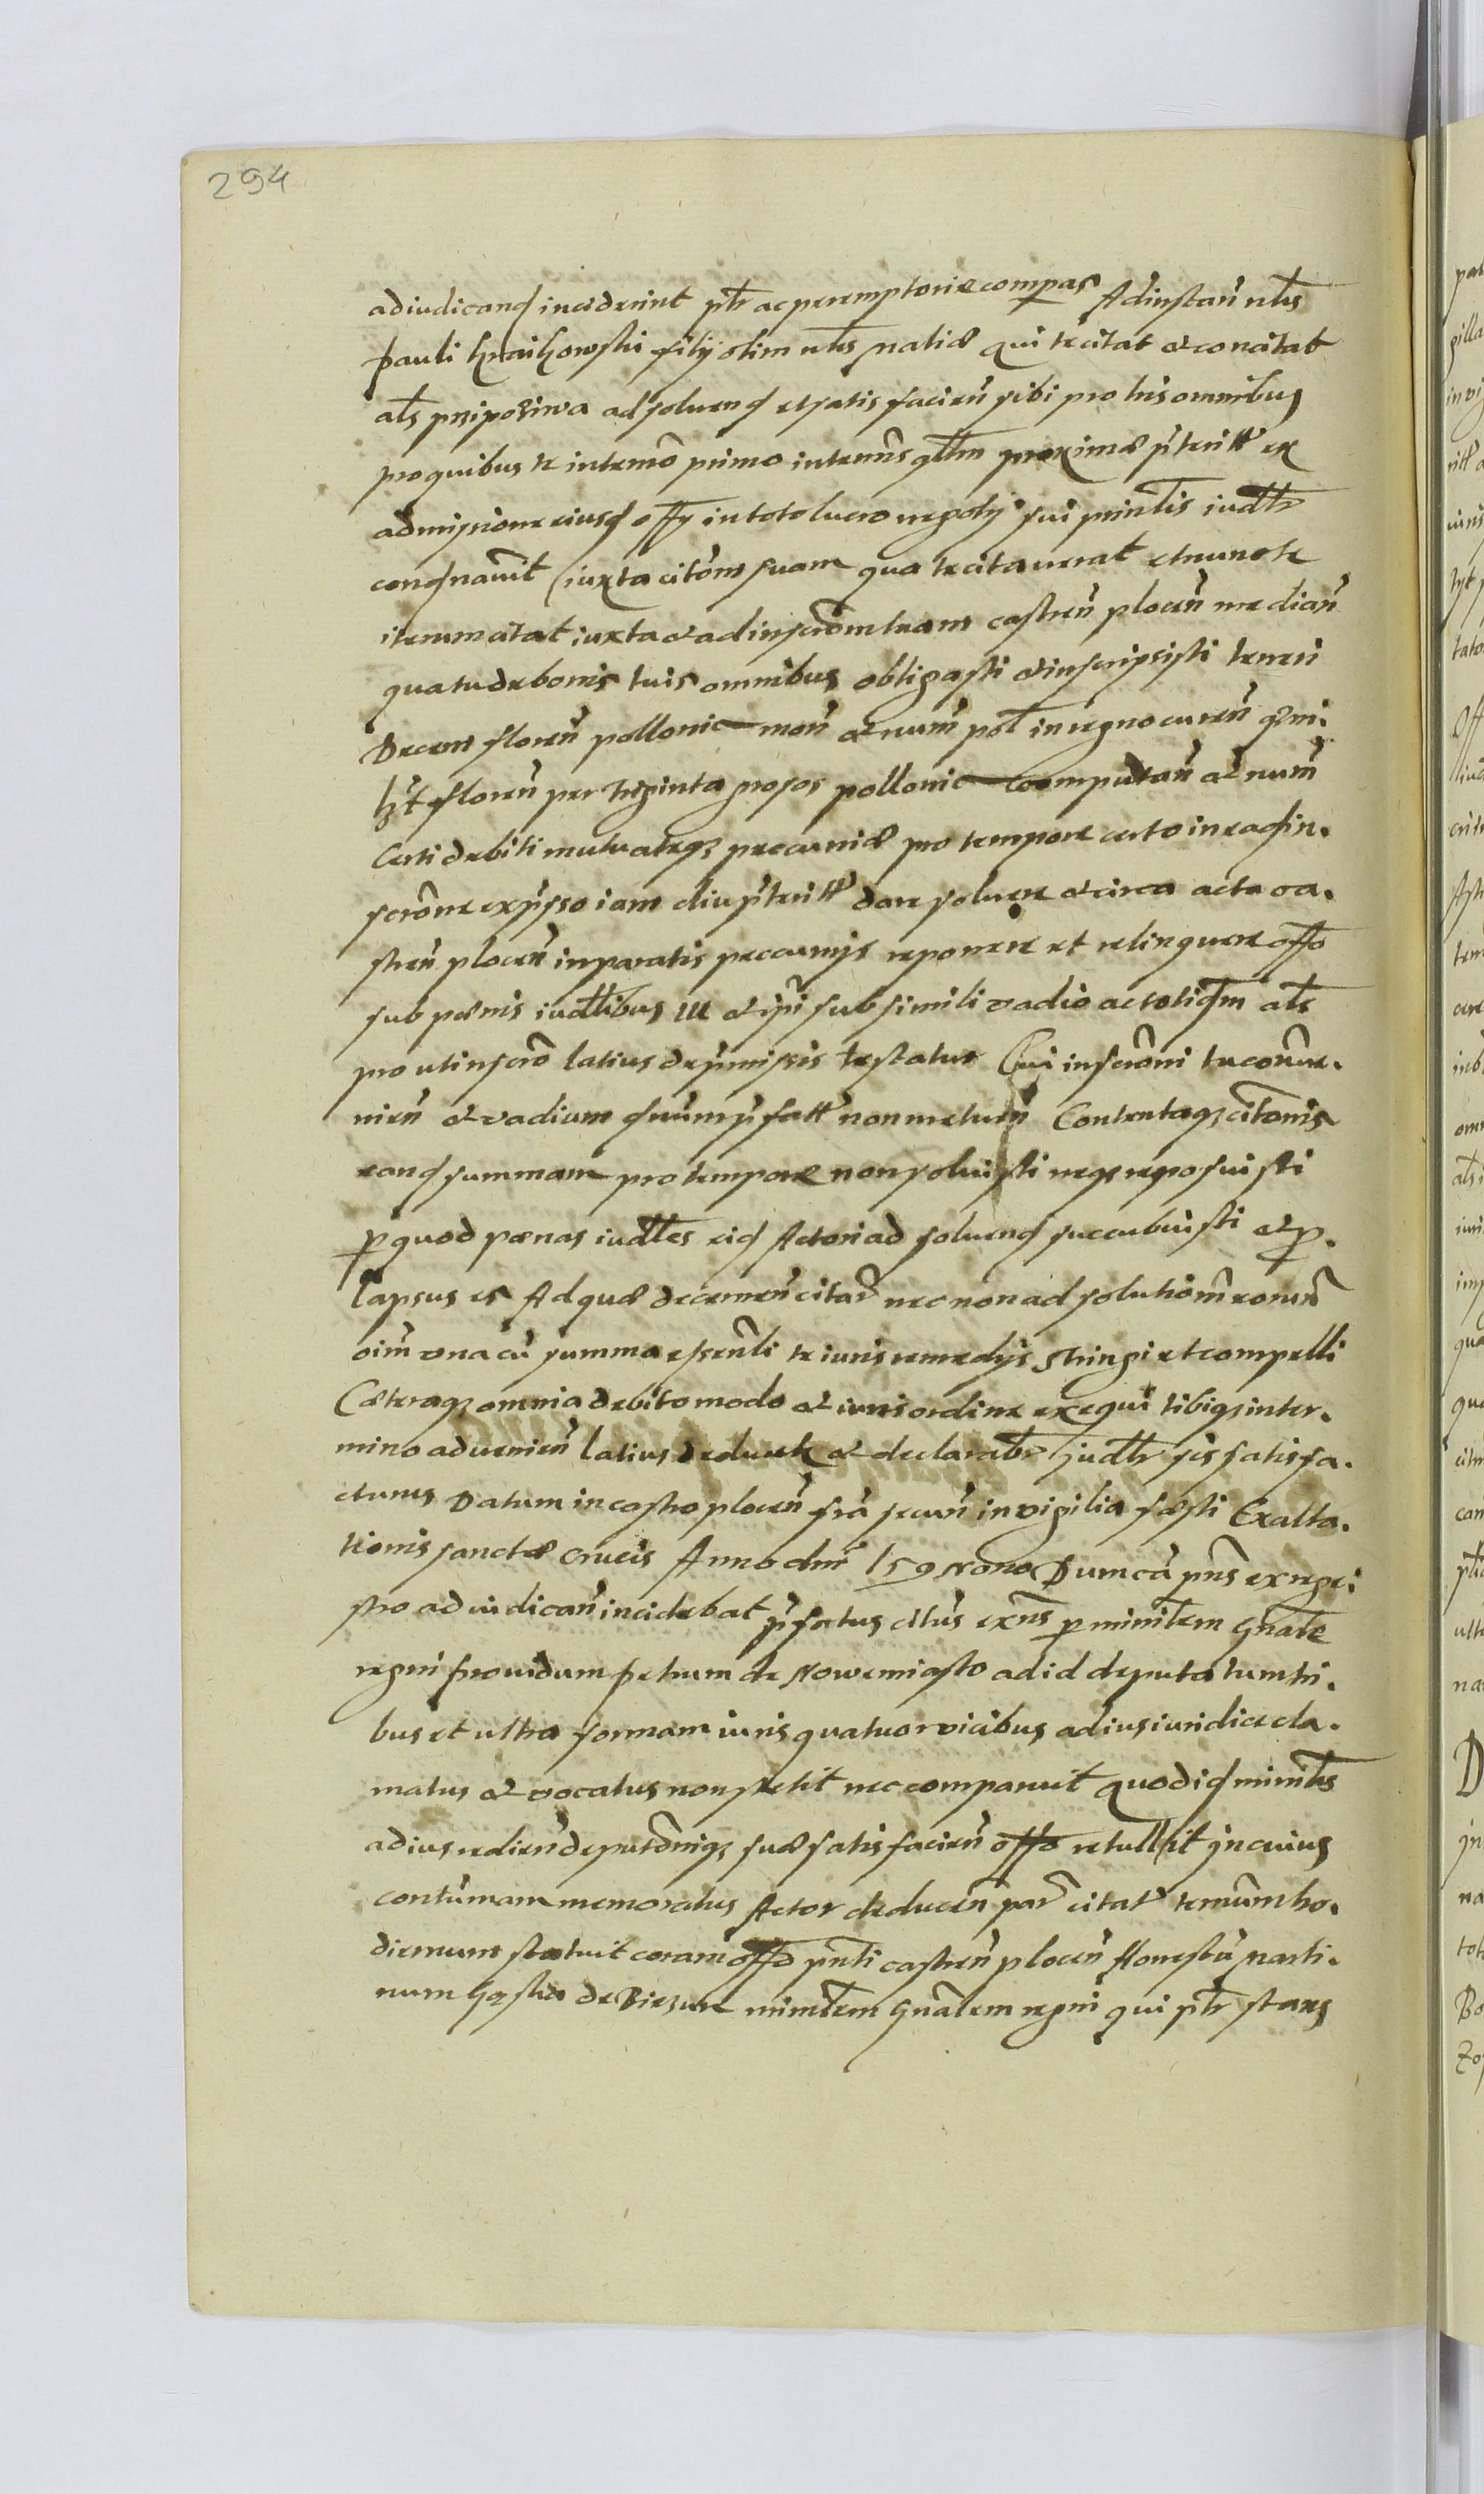 294
adiudicand inciderint ptr ac peremptorie compas Ad instan nlis
Pauli filij olim nlis Mathiæ qui te citat et concitat
als pripoziwa ad soluend et satis facien sibi pro his omnibus
pro quibus te in termo primo intermis qltm proxime pterit ex
admissione eiusd offy in toto lucro negotij sui prinlis iudtr
condnauit iuxta citom suam qua te citauerat et nunc te
iterum citat iuxta et ad inscrom tuam castren plocen median
qua tu de bonis tuis omnibus obligasti et inscripsisti teneri
Decem floren pollonic mon et num pol in regno curen
floren per triginta grosos pollonic computan et num
Certi debiti mutuateq pecuniæ pro tempore certo in ead in.
scrone expsso iam diu pterit dare soluere et circa acta ca.
stren plocen in paratis pecunijs reponere et relinquere offo
sub poenis iudtlibus III et ipi sub simili vadio actotiqm als
pro ut inscro latius de pmissis testatur Cui inscroni tu conue.
nien et vadium non metuen Contentaq citonis
eand summam pro tempore non soluisti neq reposuisti
p quod poenas iudtles eid Actori ad soluend succubuisti et p.
lapsus es Ad quæ decernen citar nec non ad solutiom eorum
oim vna cu summa essenli te iuris remedijs stringi et compelli
Cæteraq omnia debito modo et iuris ordine exequi tibiq in ter.
mino aduenien latius deducetr et declarabtr Judtr sis satisfa.
cturus Datum in castro plocen fra secun in vigilia festi Exalta.
tionis sanctæ crucis Anno dni 159 Nono Dum ca pns ex regi
stro ad iudican incidebat pfatus citus exns p minilem Gnale
regni prouidum Petrum de Nowemiasto ad id deputatum tri.
bus et ultra formam iuris quatuor vicibus ad ius iuridice cla.
matus et vocatus non stetit nec comparuit quod id minilis
ad ius redien deputoniq suæ satisfacien offo retullit In cuius
contumam memoratus Actor deducen par citat termum ho.
diernum statuit coram offo pnti castren plocen Honestu Marti.
num de Biezun minilem Gnalem regni qui ptr stans